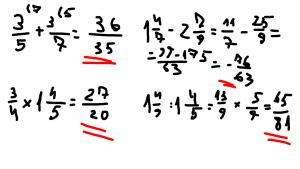 3/5 (7 + 3/7 (5 = 36/35
1 4/7 - 2 7/9 = 11/7 - 25/9 =
= 99-175/63 = - 76/63
3/4 × 1 4/5 = 27/20
1 4/9 : 1 4/5 = 13/9 × 5/9 = 65/81